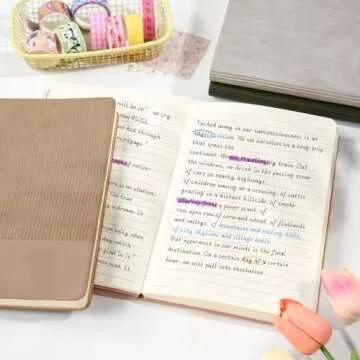 will be it!" we cry
kid through
mortgage."
of retire-
is no station,
a dream. It
only when
day which
glad in it"
Tucked away in our subconsciousness is an
idyllic vision. We see ourselves on a long trip
that spans the
continent. We are traveling by train. Out
the windows, we drink in the passing scene
of cars on nearby highways,
of children waving at a crossing, of cattle
grazing on a distant hillside, of smoke
pouring from a power plant, of
row upon row of corn and wheat, of flatlands
and valleys, of mountains and rolling hills,
of city skylines and village halls.
But uppermost in our minds is the final
destination. On a certain day at a certain
hour, we will pull into the station.